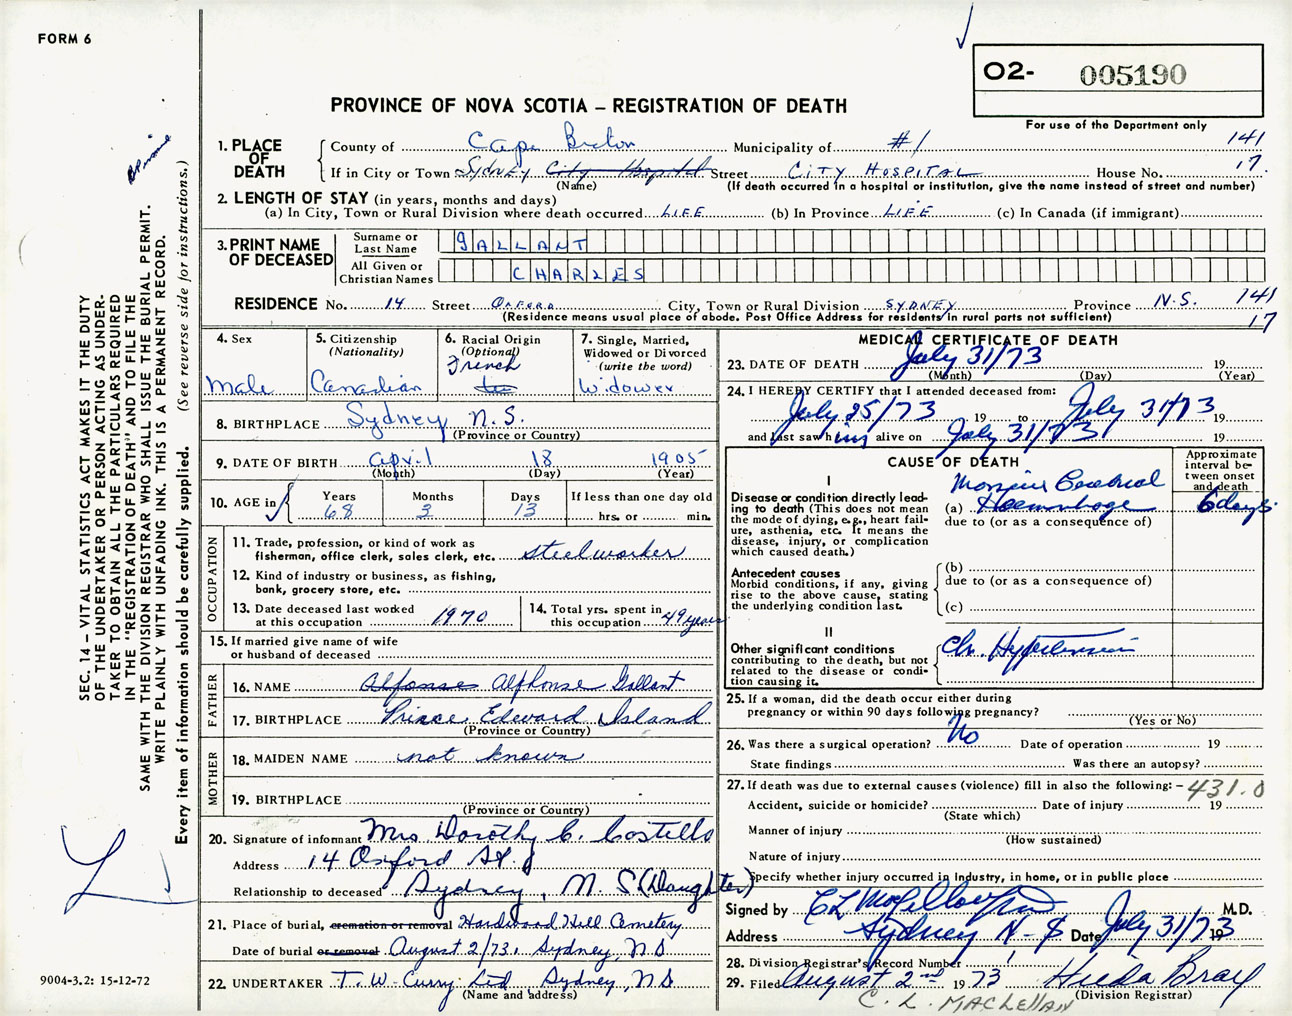 FORM 6
O2- 005190
PROVINCE OF NOVA SCOTIA – REGISTRATION OF DEATH
For use of the Department only
1. PLACE OF DEATH
County of Cape Breton Municipality of #1 141
If in City or Town Sydney City Hospital Street City Hospital House No. 17.
(Name) (If death occurred in a hospital or institution, give the name instead of street and number)
2. LENGTH OF STAY (in years, months and days)
(a) In City, Town or Rural Division where death occurred LIFE (b) In Province LIFE (c) In Canada (if immigrant)
3. PRINT NAME OF DECEASED
Surname or Last Name GALLANT
All Given or Christian Names CHARLES
RESIDENCE No. 14 Street OXFORD City, Town or Rural Division SYDNEY Province N.S. 141
(Residence means usual place of abode. Post Office Address for residents in rural parts not sufficient) 17
4. Sex
Male
5. Citizenship
(Nationality)
Canadian
6. Racial Origin
(Optional)
French
7. Single, Married,
Widowed or Divorced
(write the word)
Widower
8. BIRTHPLACE Sydney N.S.
(Province or Country)
9. DATE OF BIRTH April 18 1905
(Month) (Day) (Year)
10. AGE in
Years 68
Months 3
Days 13
If less than one day old
hrs. or min.
OCCUPATION
11. Trade, profession, or kind of work as
fisherman, office clerk, sales clerk, etc. steelworker
12. Kind of industry or business, as fishing,
bank, grocery store, etc.
13. Date deceased last worked
at this occupation 1970
14. Total yrs. spent in
this occupation 49 years
15. If married give name of wife
or husband of deceased
FATHER
16. NAME Alfonse Alphonse Gallant
17. BIRTHPLACE Prince Edward Island
(Province or Country)
MOTHER
18. MAIDEN NAME not known
19. BIRTHPLACE
(Province or Country)
20. Signature of informant Mrs Dorothy C. Costello
Address 14 Oxford St.
Relationship to deceased Sydney, N S (Daughter)
21. Place of burial, cremation or removal Hardwood Hill Cemetery
Date of burial or removal August 2/73, Sydney, N S
22. UNDERTAKER T. W. Curry Ltd, Sydney, N S
(Name and address)
MEDICAL CERTIFICATE OF DEATH
23. DATE OF DEATH July 31/73 19
(Month) (Day) (Year)
24. I HEREBY CERTIFY that I attended deceased from:
July 25/73 19 to July 31/73 19
and last saw him alive on July 31/73 19
CAUSE OF DEATH
Approximate
interval be-
tween onset
and death
I
Disease or condition directly lead-
ing to death (This does not mean
the mode of dying, e.g., heart fail-
ure, asthenia, etc. It means the
disease, injury, or complication
which caused death.)
Massive Cerebral
(a) Haemorrhage 6 days.
due to (or as a consequence of)
Antecedent causes
Morbid conditions, if any, giving
rise to the above cause, stating
the underlying condition last.
(b)
due to (or as a consequence of)
(c)
II
Other significant conditions
contributing to the death, but not
related to the disease or condi-
tion causing it.
Chr. Hypertension
25. If a woman, did the death occur either during
pregnancy or within 90 days following pregnancy?
(Yes or No)
26. Was there a surgical operation? No Date of operation 19
State findings Was there an autopsy?
27. If death was due to external causes (violence) fill in also the following: – 431.0
Accident, suicide or homicide? Date of injury 19
(State which)
Manner of injury
(How sustained)
Nature of injury
Specify whether injury occurred in industry, in home, or in public place
Signed by M.D.
Address Sydney N-S Date July 31/73 19
28. Division Registrar's Record Number
29. Filed August 2nd 1973 Hilda Bray
C. L. MACLELLAN (Division Registrar)
SEC. 14 – VITAL STATISTICS ACT MAKES IT THE DUTY
OF THE UNDERTAKER OR PERSON ACTING AS UNDER-
TAKER TO OBTAIN ALL THE PARTICULARS REQUIRED
IN THE "REGISTRATION OF DEATH" AND TO FILE THE
SAME WITH THE DIVISION REGISTRAR WHO SHALL ISSUE THE BURIAL PERMIT.
WRITE PLAINLY WITH UNFADING INK. THIS IS A PERMANENT RECORD.
Every item of information should be carefully supplied. (See reverse side for instructions.)
9004-3.2: 15-12-72